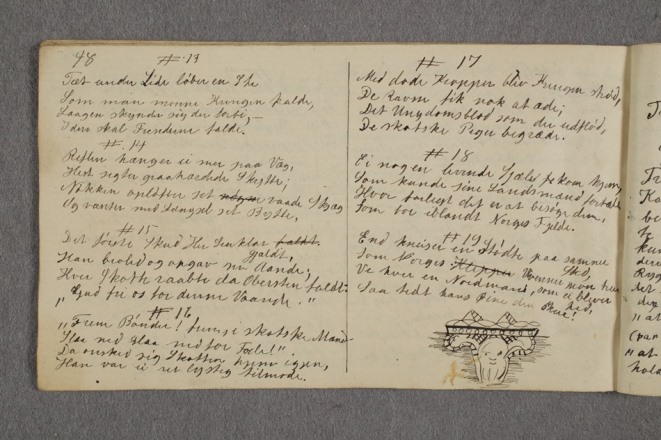 48
# 13
Tæt under Lide løber en Sti
Som man monne Kringen kalde,
Laagen skynder sig der forbi,—
I den skal Fienderne falde.
# 14
Riflen hænger ei mer paa Væg,
Hist sigter graahærdede Skytte;
Nøkken opløfter sit vaade Skjæg
Og venter med Længsel sit Bytte.
# 15
Det første Skud Hr Sinklar
Gjaldt,
Han brøled og opgav sin Aande;
Hver Skotte raabte da Obersten faldt:
"Gud fri os for denne Vaande."
# 16
"Frem Bønder! frem, i norske Mænd
Slaa ned, slaa ned for Fode!"
Da ønsked sig Skotten hjem igjen,
Han var ei ret lystig tilmode.
# 17
Med døde Kroppe blev Kringen strød,
De Ravne fik nok at æde;
Det Ungdomsblod som der udflød,
De skotske Piger begræde.
# 18
Ei nogen levende Sjæl kom hjem,
Som kunde sine Landsmænd fortælle
Hvor farligt det er at besøge dem,
Som boe iblandt Norges Fjelde.
# 19
End kneiser en Støtte paa samme
Sted,
Som Norges Uvenner mon true
Ve hver en Nordmand, som ei bliver
hed,
Saa tidt hans Øine den skue!